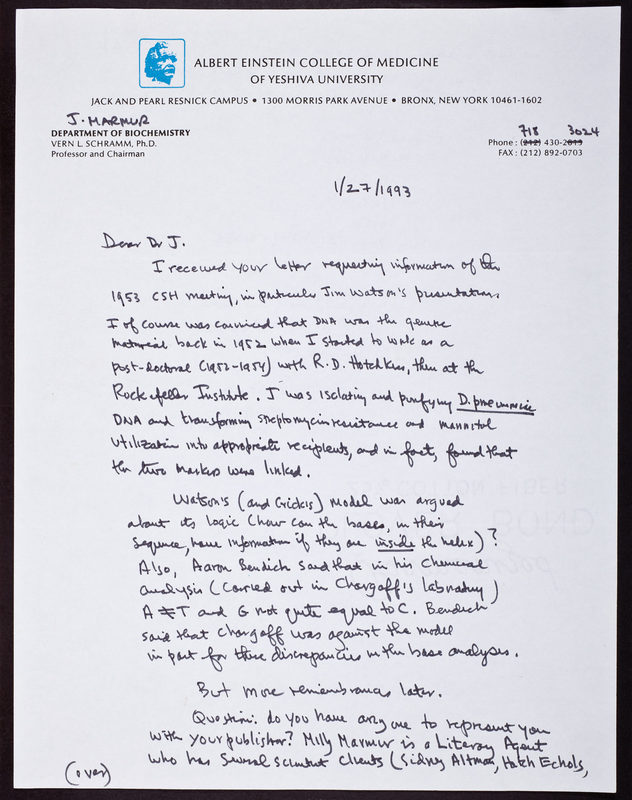 ALBERT EINSTEIN COLLEGE OF MEDICINE
OF YESHIVA UNIVERSITY
JACK AND PEARL RESNICK CAMPUS • 1300 MORRIS PARK AVENUE • BRONX, NEW YORK 10461-1602
J. MARMUR
DEPARTMENT OF BIOCHEMISTRY
VERN L. SCHRAMM, Ph.D.
Professor and Chairman
718 3024
Phone : (212) 430-2813
FAX : (212) 892-0703
1/27/1993
Dear Dr J.
I received your letter requesting information of the
1953 CSH meeting, in particular Jim Watson's presentation.
I of course was convinced that DNA was the genetic
material back in 1952 when I started to work as a
post-doctoral (1952-1954) with R.D. Hotchkiss, then at the
Rockefeller Institute. I was isolating and purifying D. pneumoniae
DNA and transforming streptomycin resistance and mannitol
utilization into appropriate recipients, and in fact, found that
the two markers were linked.
Watson's (and Crick's) model was argued
about its logic (how can the bases, in their
sequence, have information if they are inside the helix)?
Also, Aaron Bendich said that in his chemical
analysis (carried out in Chargaff's laboratory)
A ≠ T and G not quite equal to C. Bendich
said that Chargaff was against the model
in part for these discrepancies in the base analyses.
But more remembrances later.
Question: do you have anyone to represent you
with your publisher? Milly Marmur is a Literary Agent
who has several scientist clients (Sidney Altman, Hatch Echols,
(over)